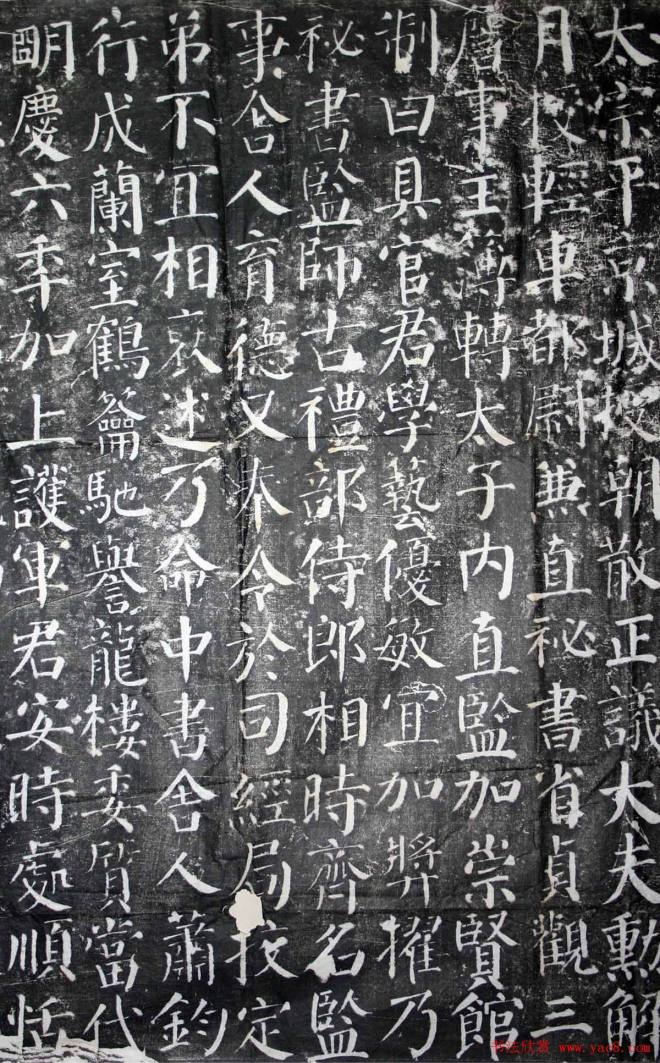 太宗平京城授朝散正議大夫勳解
月授輕車都尉兼直祕書省貞觀三
詹事主簿轉太子内直監加崇賢館
制曰具官君學藝優敏宜加奬擢乃
祕書監師古禮部侍郎相時齊名監
事舍人育德又奉令於司經局挍定
弟不宜相褒述乃命中書舍人蕭鈞
行成蘭室鶴籥馳譽龍樓委質當代
朙慶六年加上護軍君安時處順恬
书法欣赏 www.yac8.com